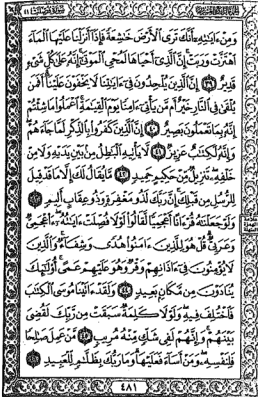 وَمِنْ ءَايَـٰتِهِۦٓ أَنَّكَ تَرَى ٱلْأَرْضَ خَـٰشِعَةً فَإِذَآ أَنزَلْنَا عَلَيْهَا ٱلْمَآءَ
ٱهْتَزَّتْ وَرَبَتْ ۚ إِنَّ ٱلَّذِىٓ أَحْيَاهَا لَمُحْىِ ٱلْمَوْتَىٰٓ ۚ إِنَّهُۥ عَلَىٰ كُلِّ شَىْءٍ
قَدِيرٌ ﴿٣٩﴾ إِنَّ ٱلَّذِينَ يُلْحِدُونَ فِىٓ ءَايَـٰتِنَا لَا يَخْفَوْنَ عَلَيْنَآ ۗ أَفَمَن
يُلْقَىٰ فِى ٱلنَّارِ خَيْرٌ أَم مَّن يَأْتِىٓ ءَامِنًا يَوْمَ ٱلْقِيَـٰمَةِ ۚ ٱعْمَلُوا۟ مَا شِئْتُمْ ۖ
إِنَّهُۥ بِمَا تَعْمَلُونَ بَصِيرٌ ﴿٤٠﴾ إِنَّ ٱلَّذِينَ كَفَرُوا۟ بِٱلذِّكْرِ لَمَّا جَآءَهُمْ ۖ
وَإِنَّهُۥ لَكِتَـٰبٌ عَزِيزٌ ﴿٤١﴾ لَّا يَأْتِيهِ ٱلْبَـٰطِلُ مِنۢ بَيْنِ يَدَيْهِ وَلَا مِنْ
خَلْفِهِۦ ۖ تَنزِيلٌ مِّنْ حَكِيمٍ حَمِيدٍ ﴿٤٢﴾ مَّا يُقَالُ لَكَ إِلَّا مَا قَدْ قِيلَ
لِلرُّسُلِ مِن قَبْلِكَ ۚ إِنَّ رَبَّكَ لَذُو مَغْفِرَةٍ وَذُو عِقَابٍ أَلِيمٍ ﴿٤٣﴾
وَلَوْ جَعَلْنَـٰهُ قُرْءَانًا أَعْجَمِيًّا لَّقَالُوا۟ لَوْلَا فُصِّلَتْ ءَايَـٰتُهُۥٓ ۖ ءَا۬عْجَمِىٌّ
وَعَرَبِىٌّ ۗ قُلْ هُوَ لِلَّذِينَ ءَامَنُوا۟ هُدًى وَشِفَآءٌ ۖ وَٱلَّذِينَ
لَا يُؤْمِنُونَ فِىٓ ءَاذَانِهِمْ وَقْرٌ وَهُوَ عَلَيْهِمْ عَمًى ۚ أُو۟لَـٰٓئِكَ
يُنَادَوْنَ مِن مَّكَانٍۭ بَعِيدٍ ﴿٤٤﴾ وَلَقَدْ ءَاتَيْنَا مُوسَى ٱلْكِتَـٰبَ
فَٱخْتُلِفَ فِيهِ ۗ وَلَوْلَا كَلِمَةٌ سَبَقَتْ مِن رَّبِّكَ لَقُضِىَ
بَيْنَهُمْ ۚ وَإِنَّهُمْ لَفِى شَكٍّ مِّنْهُ مُرِيبٍ ﴿٤٥﴾ مَّنْ عَمِلَ صَـٰلِحًا
فَلِنَفْسِهِۦ ۖ وَمَنْ أَسَآءَ فَعَلَيْهَا ۗ وَمَا رَبُّكَ بِظَلَّـٰمٍ لِّلْعَبِيدِ ﴿٤٦﴾
٤٨١